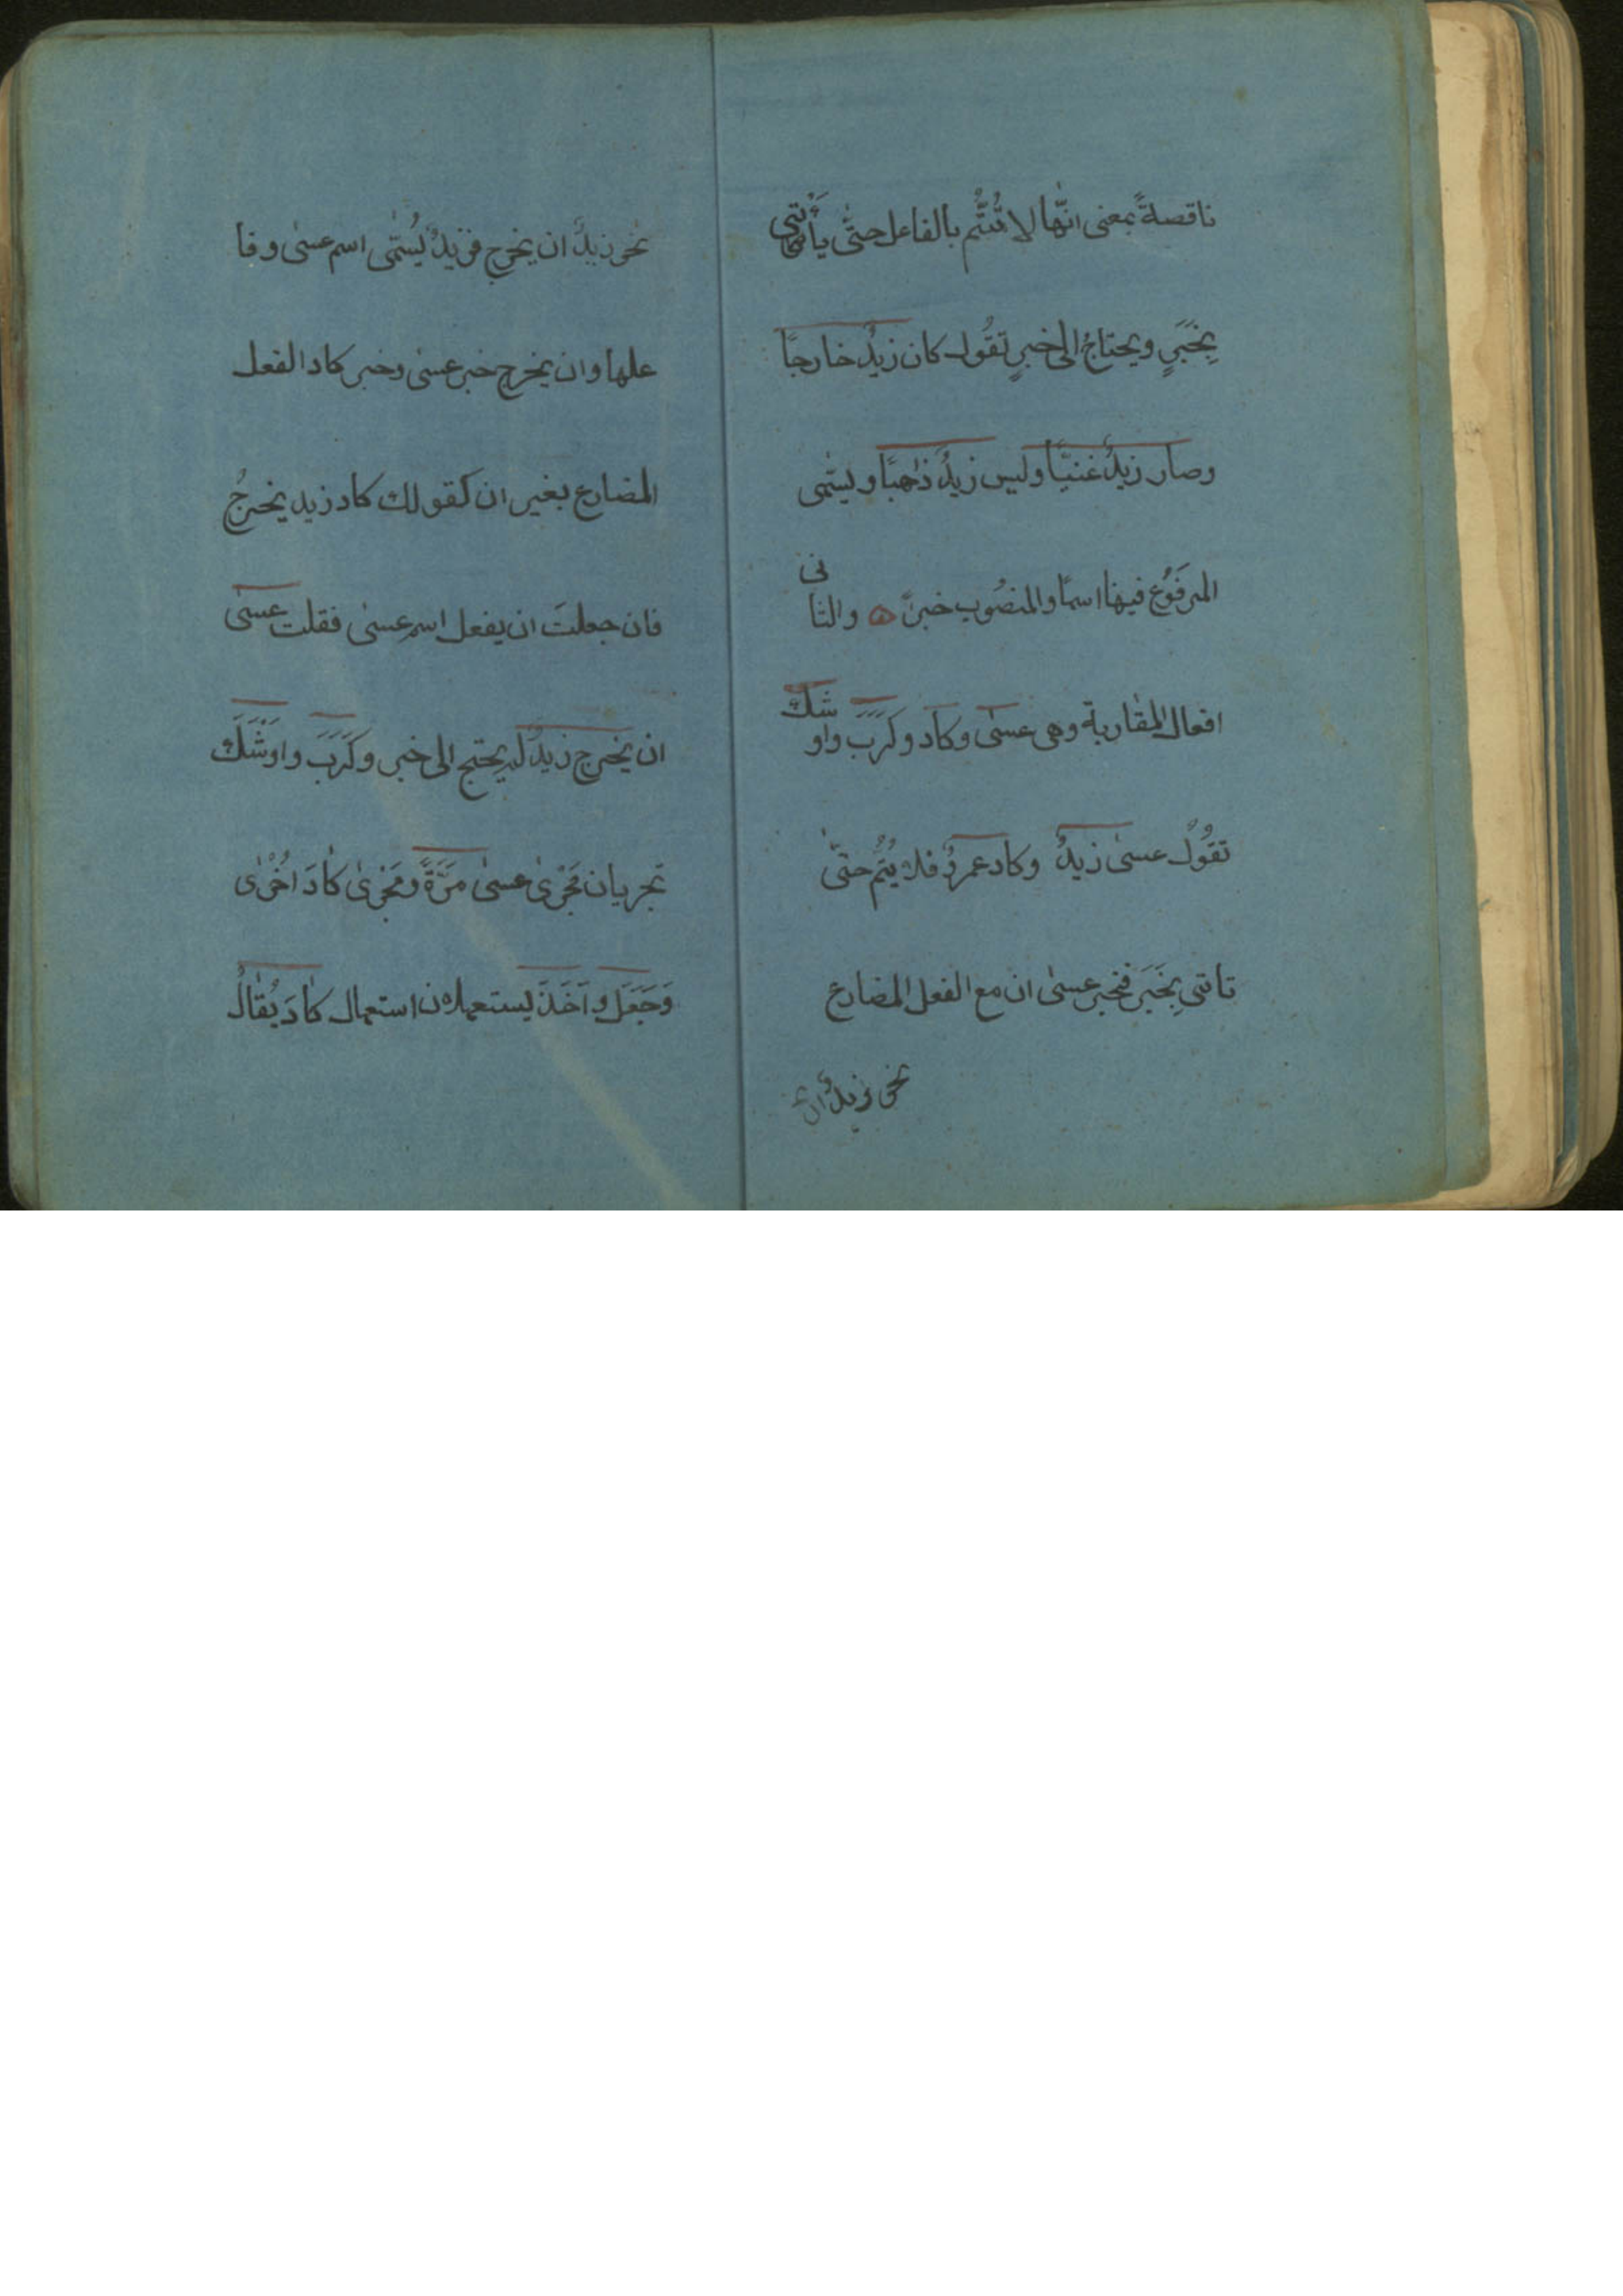 ناقصةً بمعنی انّها لا تُتُّم بالفاعل حتّٰی یأتی
بِخَبَرٍ ویحتاجُ الی خبرٍ تقُول کان زیدٌ خارجًا
وصار زیدٌ غنیّا ولیس زیدٌ ذاهبًا ویسّمی
المرفَوُع فیها اسمًا والمنصُوب خبرًا ه والثانی
افعال المقاربة وهی عسٰی وکاد وکَرَبَ واوشك
تقُوْلُ عسیٰ زیدٌ وکاد عمرٌو فلا یُتُّم حتّٰی
تاتی بِخَبَر فخبر عسیٰ ان مع الفعل المضارع
نحو زیدٌ ان
نحو زیدٌ ان یخرج فزیدٌ یُسَمّٰی اسم عسیٰ وفا
علها وان یخرج خبر عسیٰ وخبر کاد الفعل
المضارع بغیر ان کقولك کاد زید یخرجُ
فان جعلتَ ان یفعل اسم عسیٰ فقلت عسیٰ
ان یخرج زیدٌ لم یحتج الی خبر وکَرَبَ واوْشَكَ
تجریان مَجْرٰی عسیٰ مَرَّةً ومَجْرٰی کٰادَ اُخْرٰی
وَجَعَلَ واَخَذَ یستعملان استعمال کٰادَ یُقٰالُ